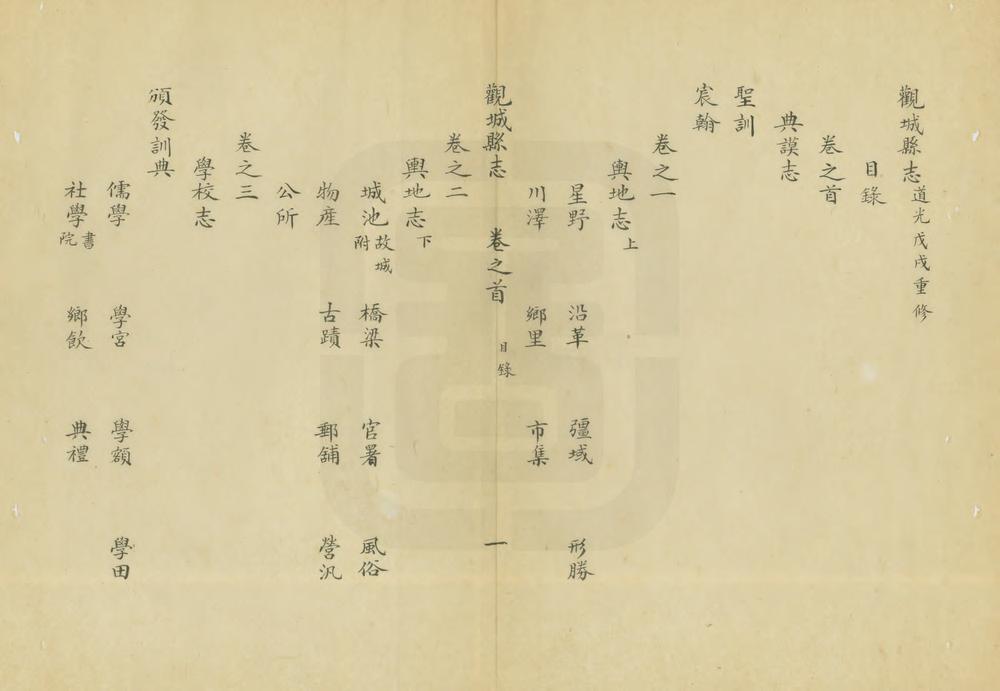 觀城縣志道光戊戌重修
目錄
卷之首
典謨志
聖訓
宸翰
卷之一
輿地志上
星野 沿革 疆域 形勝
川澤 鄉里 市集
觀城縣志 卷之首 目錄 一
卷之二
輿地志下
城池故城附 橋梁 官署 風俗
物產 古蹟 郵舖 營汛
公所
卷之三
學校志
頒發訓典
儒學 學宮 學額 學田
社學書院 鄉飲 典禮